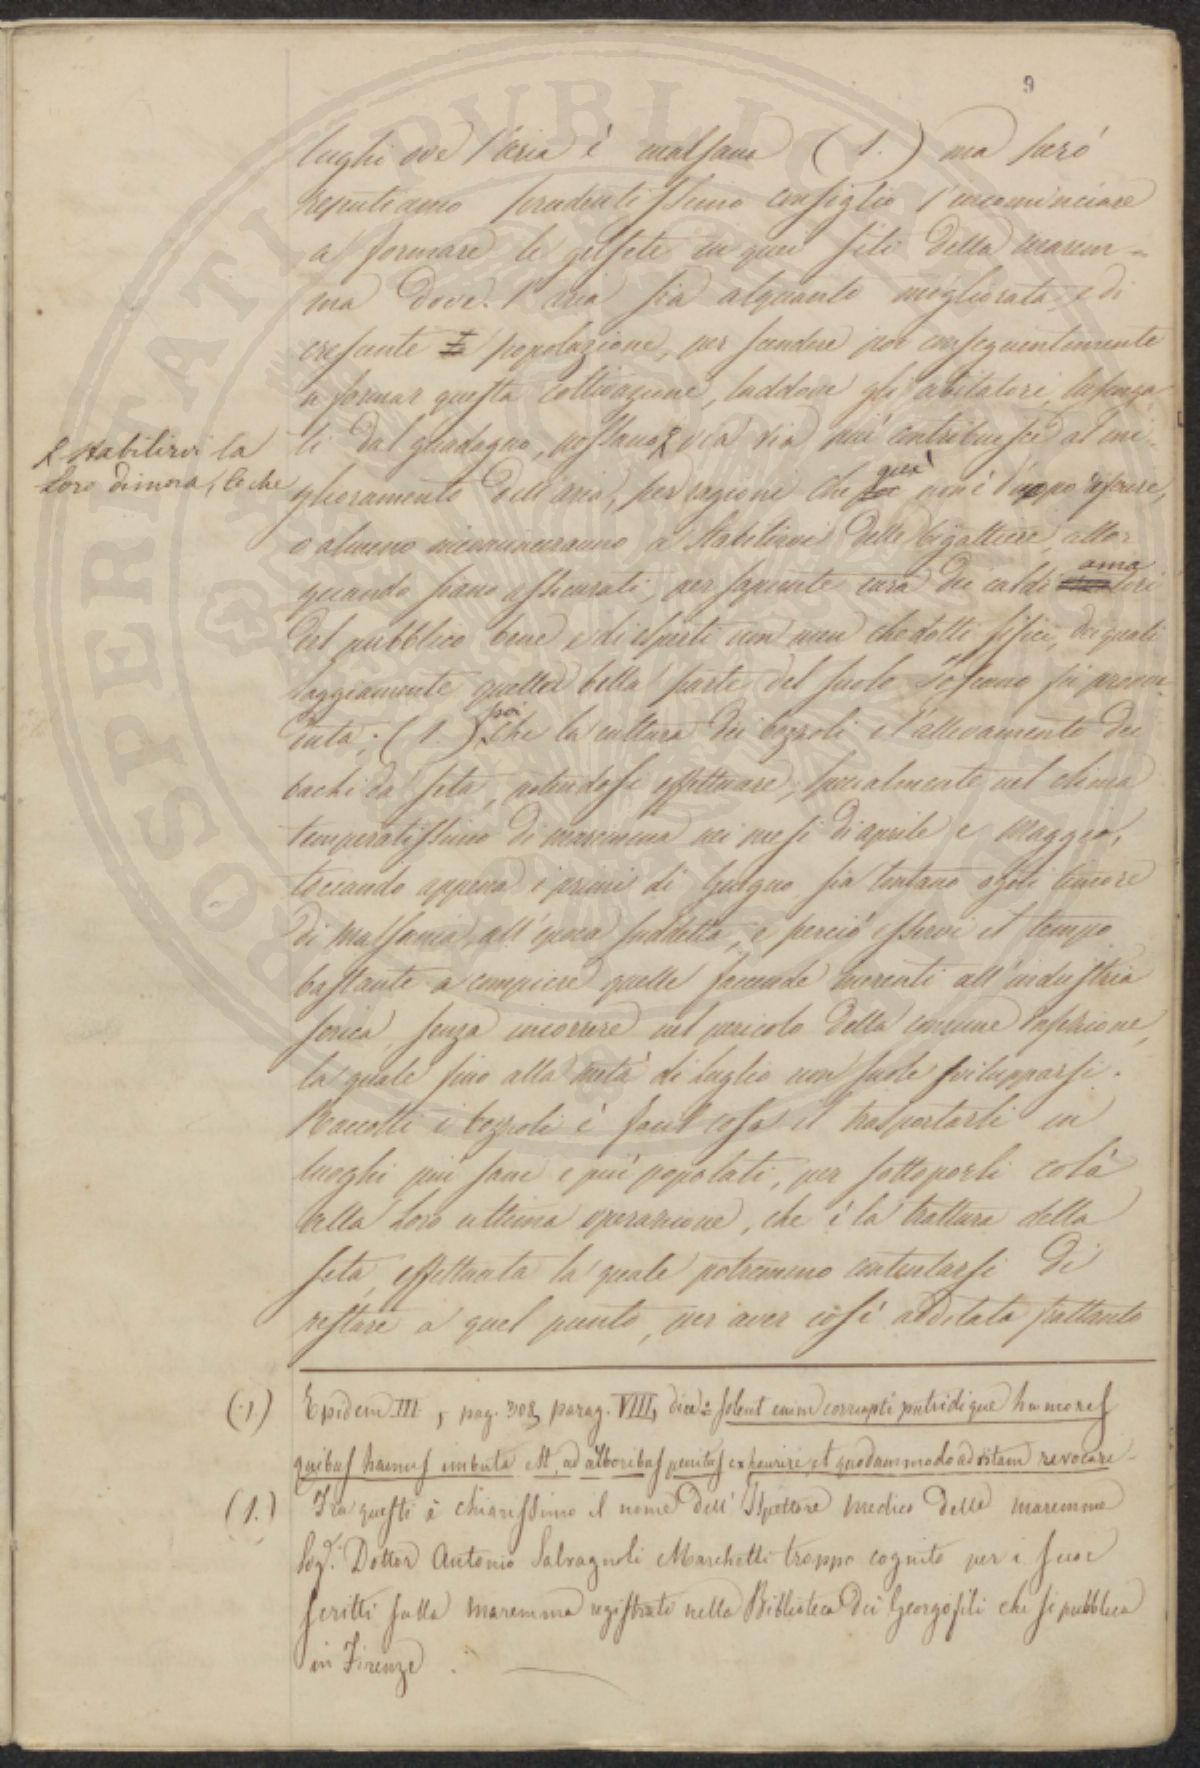 9
luoghi ove l'aria è malsana (1.) ma però
reputiamo prudentissimo consiglio l'incominciare
a formare le gelsete in quei siti della marem-
ma dove l'aria sia alquanto migliorata, e di
crescente popolazione, per scendere poi conseguentemente
a formar questa coltivazione, laddove gli abitatori, lusinga-
ti dal guadagno, possano via via più
e stabilirvi la
loro dimora, lo che
contribuisce al mi-
glioramento dell'aria, per ragioni che quì non è d'uopo riferire,
o almeno incominceranno a stabilirvi delle bigattiere, allor
quando siano assicurati, per sapiente cura dei caldi amatori
del pubblico bene e di esperti non men che dotti fisici, dai quali
saggiamente quella bella parte del suolo Toscano fu provve-
duta; (1.) poi che la cultura dei bozzoli e l'allevamento dei
bachi da seta, potendosi effettuare, specialmente nel clima
temperatissimo di maremma nei mesi di aprile e maggio,
toccando appena i primi di Giugno sia lontano ogni timore
di malsania, all'epoca suddetta, e perciò esservi il tempo
bastante a compiere quelle faccende inerenti all'industria
serica, senza incorrere nel pericolo della comune infezione,
la quale fino alla metà di luglio non suole svilupparsi.
Raccolti i bozzoli è facil cosa il trasportarli in
luoghi più sani e più popolati, per sottoporli colà
alla loro ultima operazione, che è la trattura della
seta, effettuata la quale potremmo contentarsi di
restare a quel punto, per aver così additata frattanto
(1) Epidem III, pag. 308, parag. VIII, dice = solent enim corrupti putridique humores
quibus humus imbuta est, ad alboribus penitus exhaurire, et quodammodo ad vitam revocare -
(1.) Fra questi è chiarissimo il nome dell'Ispettore medico delle maremme
Sig. Dottor Antonio Salvagnoli Marchetti troppo cognito per i suoi
scritti sulla maremma registrati nella Biblioteca dei Georgofili che si pubblica
in Firenze.
OSPERITATI PUBLICAE